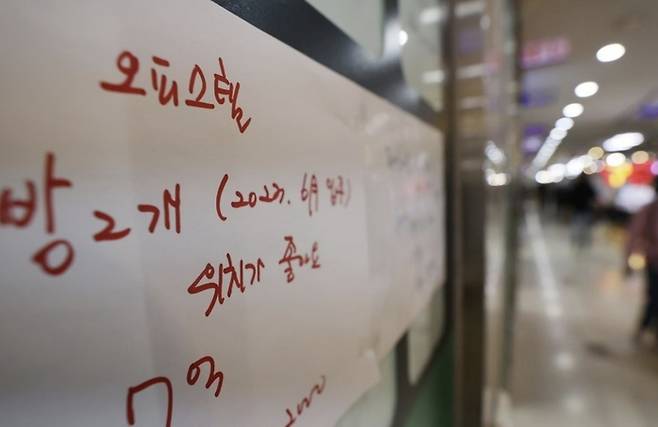 오피스텔
방 2개 (2023. 6月 입주)
위치가 좋아요
7억